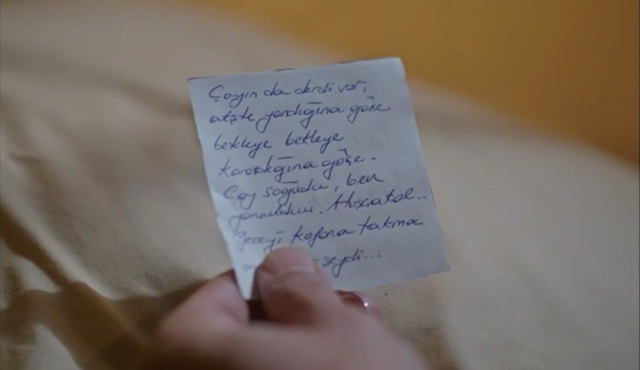 Çayın da derdi var,
ateşte yandığına göre
bekleye bekleye
karardığına göre.
Çay soğudu, ben
yoruldum. Hoşça kal..
Geceyi kafana takma
seydi...